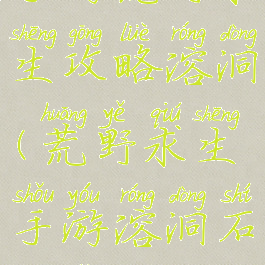 shēng gōng lüè róng dòng
生攻略溶洞
huāng yě qiú shēng
(荒野求生
shǒu yóu róng dòng shí
手游溶洞石